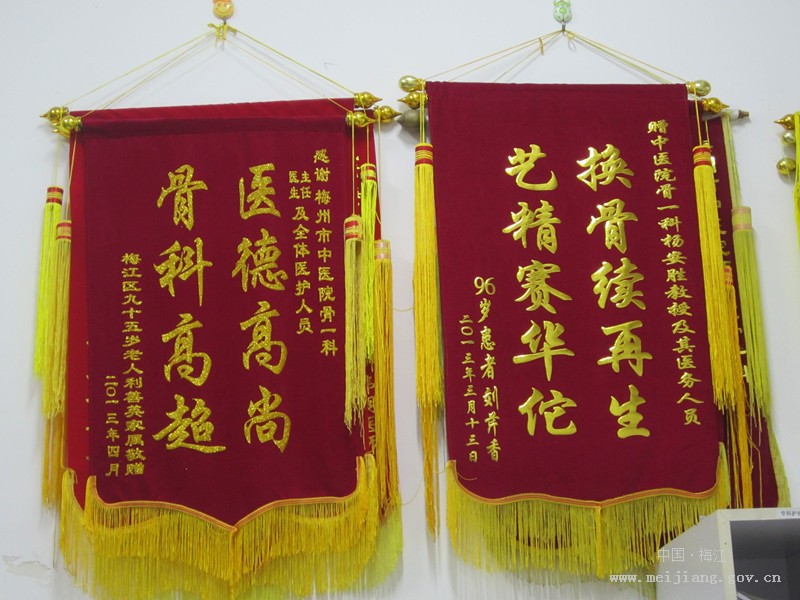 感谢梅州市中医院骨一科
主任
医生
及全体医护人员
医德高尚
骨科高超
梅江区九十五岁老人利善英家属敬赠
二〇一三年四月
赠中医院骨一科杨安胜教授及其医务人员
换骨续再生
艺精赛华佗
96岁患者刘舜香
二〇一三年三月十三日
中国·梅江
www.meijiang.gov.cn